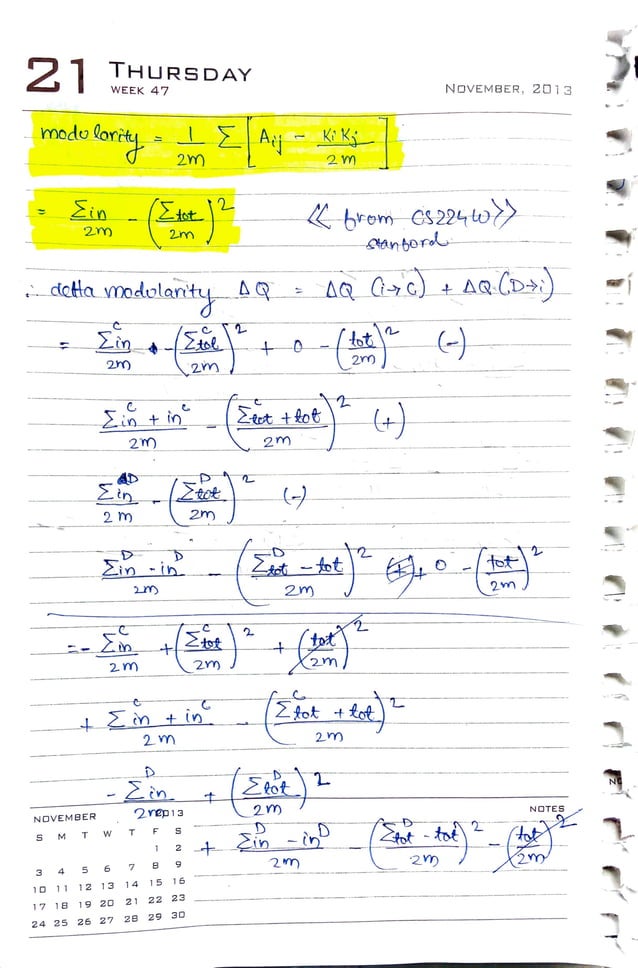 21 THURSDAY
WEEK 47
NOVEMBER, 2013
modularity = 1/2m Σ [Aij - KiKj/2m]
= Σin/2m - (Σtot/2m)²
<< from CS224W>>
stanford
∴ delta modularity ΔQ = ΔQ (i→C) + ΔQ (D→i)
= Σin^C/2m - (Σtot^C/2m)² + 0 - (tot/2m)² (-)
Σin^C + in^C/2m - (Σtot^C + tot/2m)² (+)
Σin^D/2m - (Σtot^D/2m)² (-)
Σin^D - in^D/2m - (Σtot^D - tot/2m)² (+) + 0 - (tot/2m)²
= - Σin^C/2m + (Σtot^C/2m)² + (tot/2m)²
+ Σin^C + in^C/2m - (Σtot^C + tot/2m)²
- Σin^D/2m + (Σtot^D/2m)²
+ Σin^D - in^D/2m - (Σtot^D - tot/2m)² - (tot/2m)²
NOVEMBER 2013
S M T W T F S
1 2
3 4 5 6 7 8 9
10 11 12 13 14 15 16
17 18 19 20 21 22 23
24 25 26 27 28 29 30
NOTES